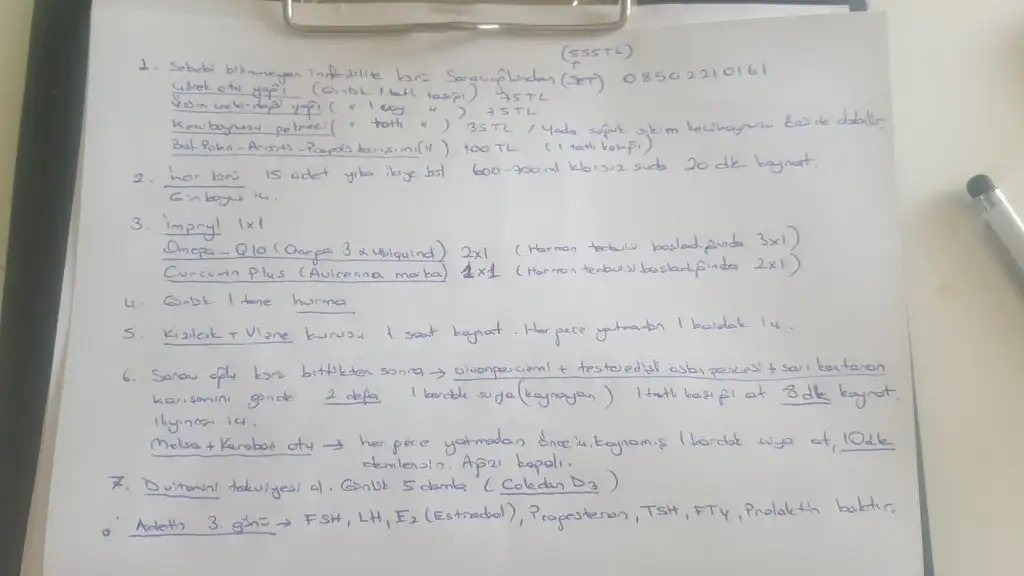 (555TL)
1. Sebebi bilinmeyen infertilite kürü 08502210161
Çörek otu yağı (Günlük 1 tatlı kaşığı) 75 TL
Üzüm çekirdeği yağı ( " 1 çay " ) 75 TL
Keçiboynuzu pekmezi ( " tatlı " ) 35 TL / Yada soğuk sıkım keçiboynuzu özü de olabilir.
Bal-Polen-Arısütü-Propolis karışımı (") 100 TL (1 tatlı kaşığı)
2. 15 adet yıka ikiye böl 600-700 ml klorsuz suda 20 dk kaynat.
Gün boyu iç.
3. İmpryl 1x1
Omega-Q10 (Omega 3 & Ubiquinol) 2x1 (Hormon tedavisi başladığında 3x1)
Curcumin Plus (Avicenna marka) 1x1 (Hormon tedavisi başladığında 2x1)
4. Günlük 1 tane hurma
5. Kızılcık + Vişne kurusu 1 saat kaynat. Her gece yatmadan 1 bardak iç.
6. Soğan kürü bittikten sonra → civanperçemi + testeredişli aslan pençesi + sarı kantaron
karışımını günde 2 defa 1 bardak suya (kaynayan) 1 tatlı kaşığı at 3 dk kaynat.
ılıyınca iç.
Melisa + Karabaş otu → her gece yatmadan önce iç. kaynamış 1 bardak suya at, 10dk
demlensin. Ağzı kapalı.
7. D vitamini takviyesi al. Günlük 5 damla (Coledan D3)
Adetin 3. günü → FSH, LH, E2 (Estradiol), Progesteron, TSH, FT4, Prolaktin baktır.